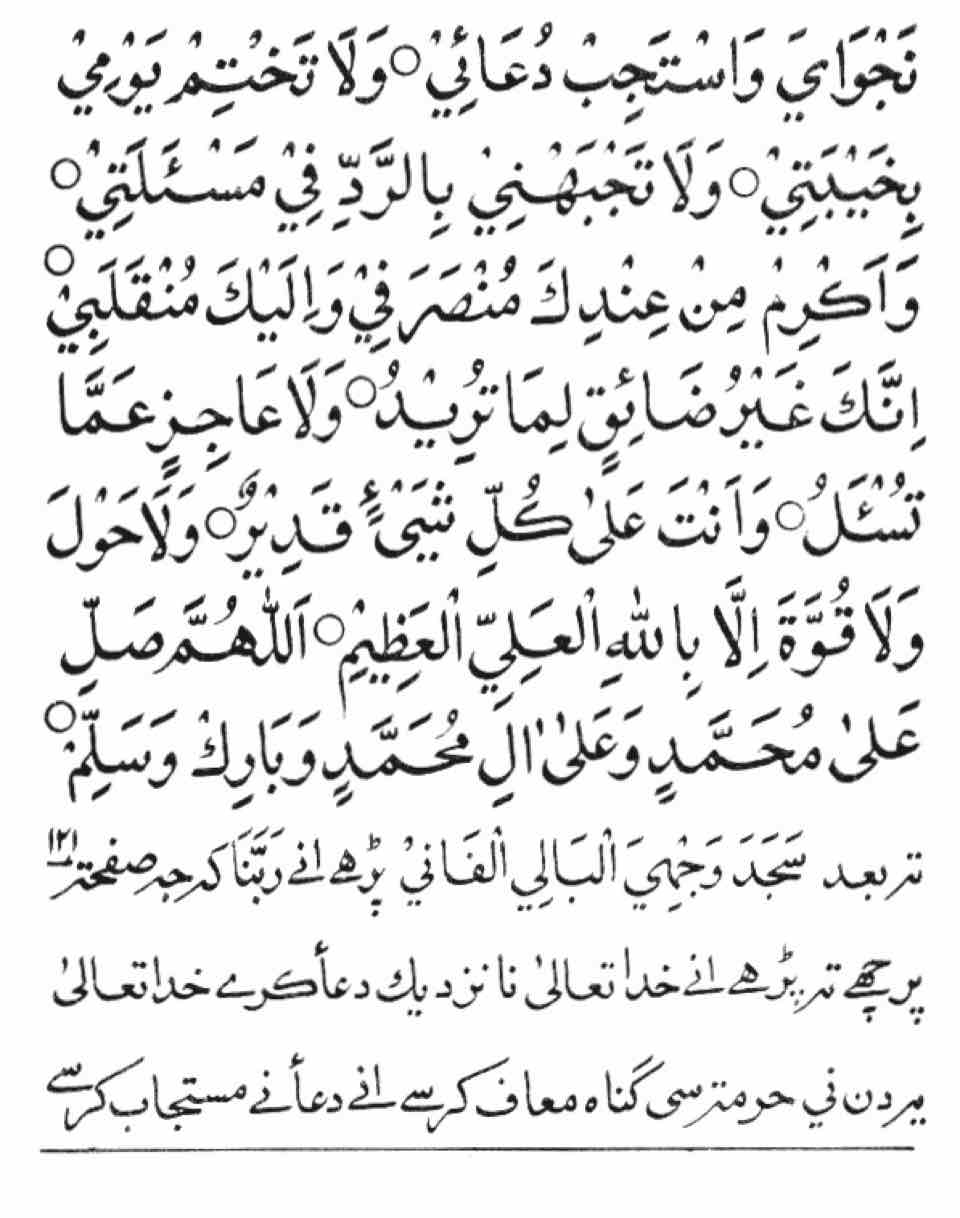 نَجْوَايَ وَاسْتَجِبْ دُعَائِيْ○ وَلَا تَخْتِمْ يَوْمِيْ
بِخَيْبَتِيْ○ وَلَا تَجْبَهْنِيْ بِالرَّدِّ فِيْ مَسْئَلَتِيْ○
وَاَكْرِمْ مِنْ عِنْدِكَ مُنْصَرَفِيْ وَاِلَيْكَ مُنْقَلَبِيْ○
اِنَّكَ غَيْرُ ضَائِقٍ لِمَا تُرِيْدُ○ وَلَا عَاجِزٍ عَمَّا
تُسْئَلُ○ وَاَنْتَ عَلىٰ كُلِّ شَيْئٍ قَدِيْرٌ○ وَلَا حَوْلَ
وَلَا قُوَّةَ اِلَّا بِاللهِ الْعَلِيِّ الْعَظِيْمِ○ اَللّٰهُمَّ صَلِّ
عَلىٰ مُحَمَّدٍ وَعَلىٰ اٰلِ مُحَمَّدٍ وَبَارِكْ وَسَلِّمْ○
تہ بعد سَجَدَ وَجْهِيَ الْبَالِي الْفَانِيْ پڑھے انے رَبَّنَا کہ جہ صفحۃ ۱۲۱
پر چھے تہ پڑھے انے خدا تعالىٰ نا نزديك دعأ كرے خدا تعالىٰ
يہ دن ني حرمۃ سی گناه معاف كرسے انے دعأ نے مستجاب كرسے